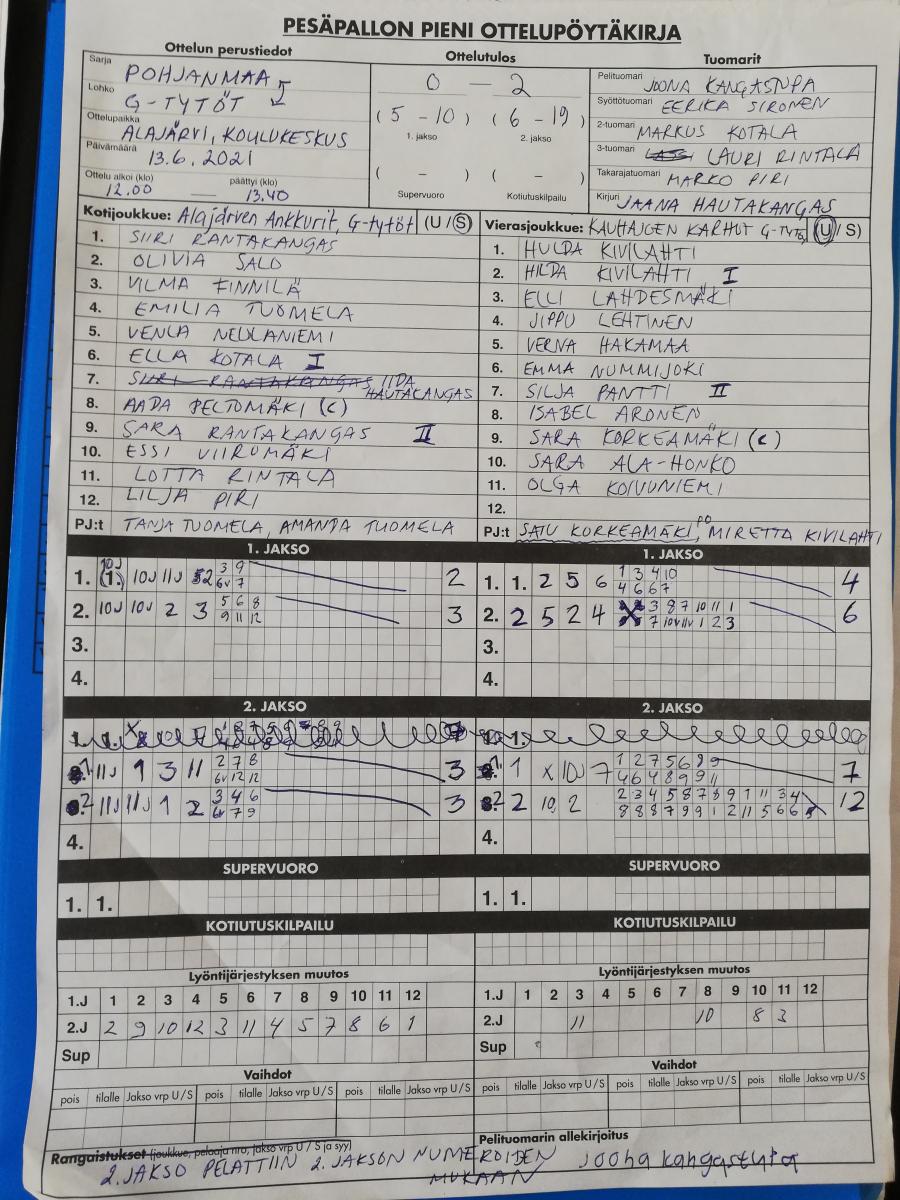 PESÄPALLON PIENI OTTELUPÖYTÄKIRJA
Ottelun perustiedot
Sarja POHJANMAA
Lohko G-TYTÖT
Ottelupaikka ALAJÄRVI, KOULUKESKUS
Päivämäärä 13.6.2021
Ottelu alkoi (klo) 12.00 päättyi (klo) 13.40
Ottelutulos
0 - 2
(5 - 10) (6 - 19)
1. jakso 2. jakso
( - ) ( - )
Supervuoro Kotiutuskilpailu
Tuomarit
Pelituomari JOONA
Syöttötuomari EERIKA SIRONEN
2-tuomari MARKUS KOTALA
3-tuomari LAURI RINTALA
Takarajatuomari MARKO PIRI
Kirjuri JAANA HAUTAKANGAS
Kotijoukkue: Alajärven Ankkurit, G-tytöt (U / S)
1. SIIRI RANTAKANGAS
2. OLIVIA SALO
3. VILMA FINNILÄ
4. EMILIA TUOMELA
5. VENLA NEULANIEMI
6. ELLA KOTALA I
7. SIIRI RANTAKANGAS IIDA
HAUTAKANGAS
8. AADA PELTOMÄKI (C)
9. SARA RANTAKANGAS II
10. ESSI VIIRUMÄKI
11. LOTTA RINTALA
12. LILJA PIRI
PJ:t TANJA TUOMELA, AMANDA TUOMELA
Vierasjoukkue: KAUHAJOEN KARHUT G-TYTÖT (U / S)
1. HULDA KIVILAHTI
2. HILDA KIVILAHTI I
3. ELLI LAHDESMÄKI
4. JIPPU LEHTINEN
5. VERNA HAKAMAA
6. EMMA NUMMIJOKI
7. SILJA PANTTI II
8. ISABEL ARONEN
9. SARA KORKEAMÄKI (C)
10. SARA ALA-HONKO
11. OLGA KOIVUNIEMI
12.
PJ:t SATU KORKEAMÄKI, PO MIRETTA KIVILAHTI
1. JAKSO
1. 10J 11J 3 9 2
6v 7
2. 10J 10J 2 3 5 6 8 3
9 11 12
3.
4.
1. JAKSO
1. 1. 2 5 6 1 3 4 10 4
4 6 6 7
2. 2 5 2 4 3 8 7 10 11 1 6
7 10v 11v 1 2 3
3.
4.
2. JAKSO
1 11J 9 3 11 2 7 8 3
6v 12 12
2 11J 11J 1 2 3 4 6 3
6v 7 9
4.
2. JAKSO
1 1 X 10J 7 1 2 7 5 6 8 9 7
4 6 4 8 9 9 11
2 2 10, 2 2 3 4 5 8 7 8 9 1 11 3 4 12
8 8 8 7 9 9 1 2 11 5 6 6
4.
SUPERVUORO
1. 1.
SUPERVUORO
1. 1.
KOTIUTUSKILPAILU
KOTIUTUSKILPAILU
Lyöntijärjestyksen muutos
1.J 1 2 3 4 5 6 7 8 9 10 11 12
2.J 2 9 10 12 3 11 4 5 7 8 6 1
Sup
Lyöntijärjestyksen muutos
1.J 1 2 3 4 5 6 7 8 9 10 11 12
2.J 11 10 8 3
Sup
Vaihdot
pois tilalle Jakso vrp U / S pois tilalle Jakso vrp U / S pois tilalle Jakso vrp U / S
Vaihdot
pois tilalle Jakso vrp U / S pois tilalle Jakso vrp U / S pois tilalle Jakso vrp U / S
Rangaistukset (joukkue, pelaaja nro, jakso vrp U / S ja syy)
2. JAKSO PELATTIIN 2. JAKSON NUMEROIDEN
MUKAAN
Pelituomarin allekirjoitus